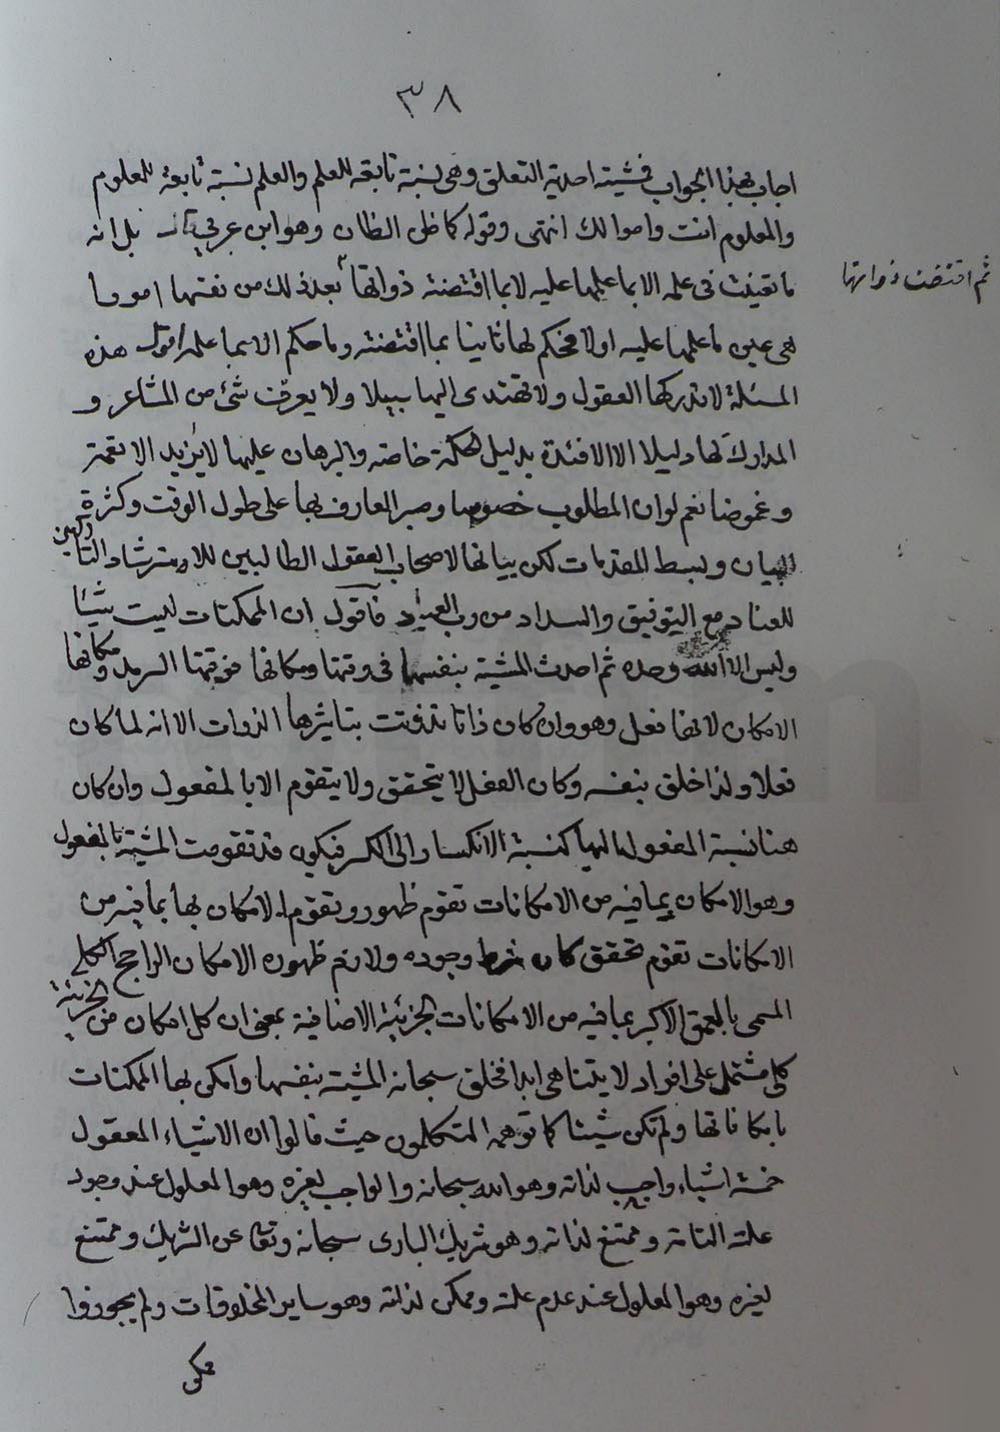 ٣٨
اجاب بهذا الجواب فمشيته احدية التعلق وهى نسبة تابعة للعلم والعلم نسبة تابعة للمعلوم
والمعلوم انت واحوالك انتهى وقوله كما ظن الظان وهو ابن عربي بل انه
ما تعينت فى علمه الا بما علمها عليه لا بما اقتضته ذواتها بعد ذلك من نفسها امورا
ثم اقتضت ذواتها
هى عين ما علمها عليه اولا فحكم لها ثانيا بما اقتضته وما حكم الا بما علمه اقول هذه
المسئلة لا تدركها العقول ولا تهتدى اليها سبيلا ولا يعرف شئ من المشاعر و
المدارك لها دليلا الا الافئدة بدليل الحكمة خاصة والبرهان عليها لا يزيد الا تعمية
وغموضا نعم لو ان المطلوب خصوصا وصبر العارف لها على طول الوقت وكثرة
البيان وبسط المقدمات لكن بيانها لاصحاب العقول الطالبين للاسترشاد التاركين
للعناد مع التوفيق والسداد من رب العباد فاقول ان الممكنات ليست شيئا
وليس الا الله وحده ثم احدث المشية بنفسها فى وقتها ومكانها فوقتها السرمد ومكانها
الامكان لانها فعل وهو وان كان ذاتا تذوتت بتاثيرها الذوات الا انه لما كان
فعلا ولذا خلق بنفسه وكان الفعل لا يتحقق ولا يتقوم الا بالمفعول وان كان
هنا نسبة المفعول اليها كنسبة الانكسار الى الكسر فيكون قد تقومت المشية بالمفعول
وهو الامكان بما فيه من الامكانات تقوم ظهور وتقوم الامكان بها بما فيه من
الامكانات تقوم تحقق كان شرط وجوده ولازم ظهوره الامكان الراجح الكلى
المسمى بالعمق الاكبر بما فيه من الامكانات الجزئية الاضافية بمعنى ان كل امكان من الجزئية
كلى مشتمل على افراد لا يتناهى ابدا فخلق سبحانه المشية بنفسها وامكن بها الممكنات
بامكاناتها ولم تكن شيئا كما توهمه المتكلمون حيث قالوا ان الاشياء المعقول
خمسة اشياء واجب لذاته وهو الله سبحانه والواجب لغيره وهو المعلول عند وجود
علته التامة وممتنع لذاته وهو شريك البارى سبحانه وتعالى عن الشريك وممتنع
لغيره وهو المعلول عند عدم علته وممكن لذاته وهو ساير المخلوقات ولم يجوزوا
ممكن